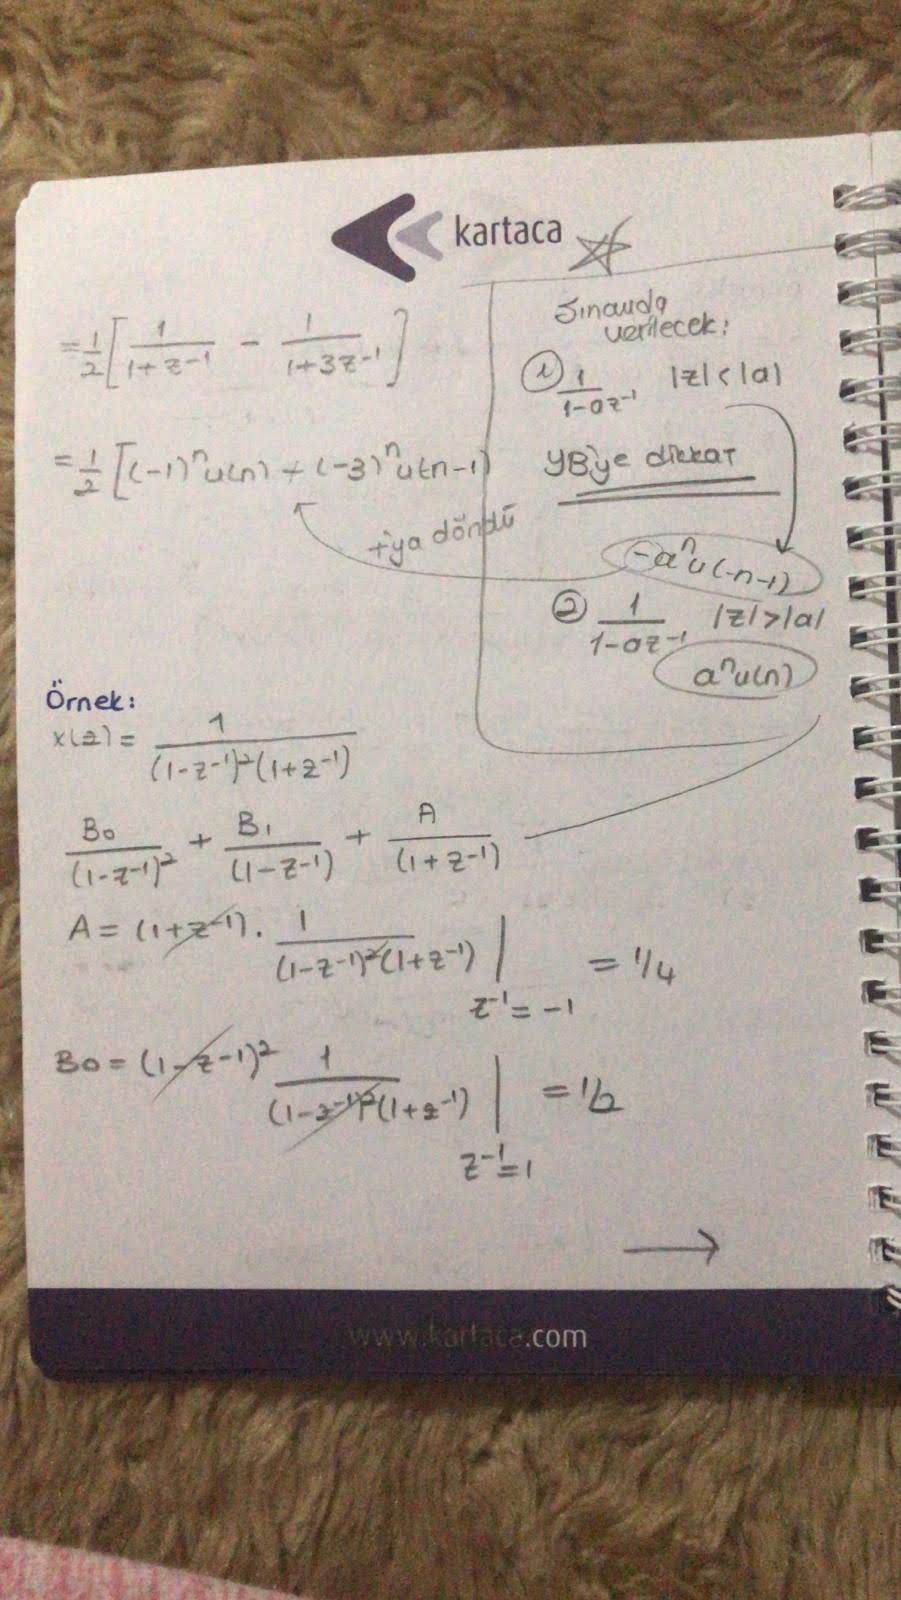 kartaca
= 1/2 [ 1/(1+z⁻¹) - 1/(1+3z⁻¹) ]
= 1/2 [(-1)ⁿu(n) + (-3)ⁿu(-n-1)]
+'ya döndü
Sınavda
verilecek:
① 1/(1-az⁻¹) |z|<|a|
YB'ye dikkat
-aⁿu(-n-1)
② 1/(1-az⁻¹) |z|>|a|
aⁿu(n)
Örnek:
x(z) = 1/((1-z⁻¹)²(1+z⁻¹))
B0/(1-z⁻¹)² + B1/(1-z⁻¹) + A/(1+z⁻¹)
A = (1+z⁻¹). 1/((1-z⁻¹)²(1+z⁻¹)) | z⁻¹=-1 = 1/4
B0 = (1-z-1)² 1/((1-z⁻¹)²(1+z⁻¹)) | z⁻¹=1 = 1/2
→
www.kartaca.com